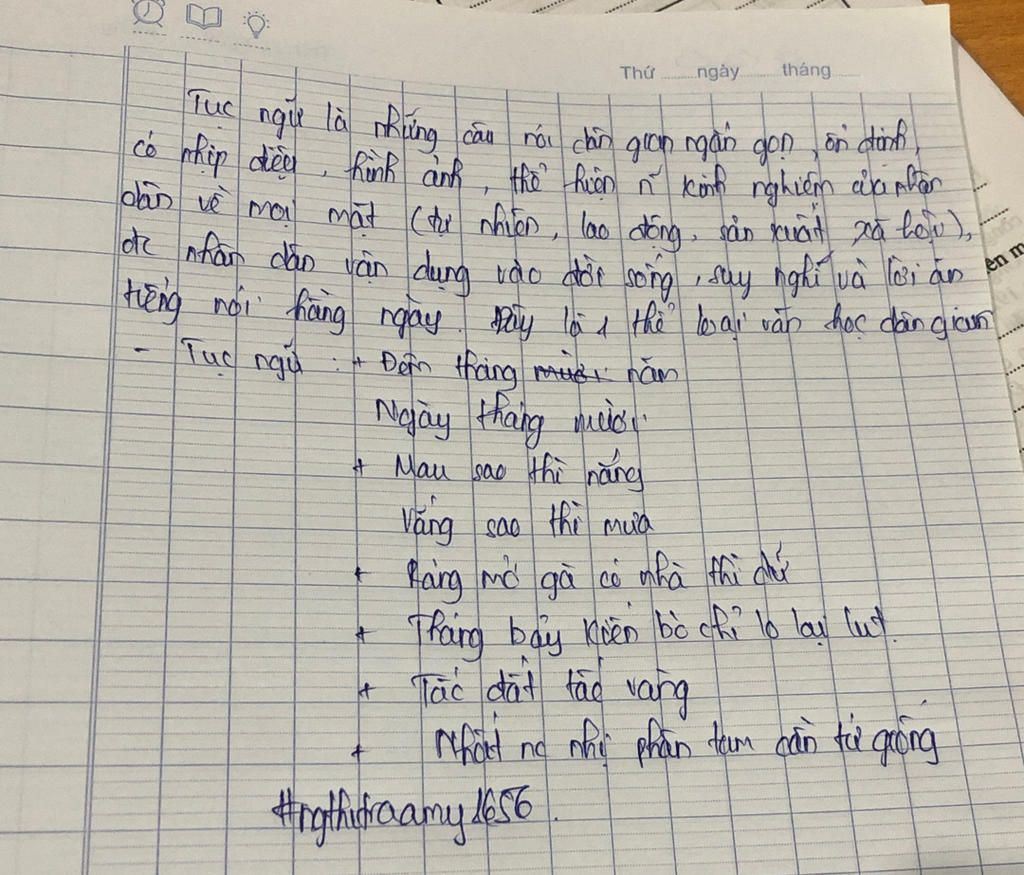 Thứ ngày tháng
Tục ngữ là những câu nói dân gian ngắn gọn, ổn định,
có nhịp điệu, hình ảnh, thể hiện n~ kinh nghiệm của nhân
dân về mọi mặt (tự nhiên, lao động, sản xuất, xã hội),
đc nhân dân vận dụng vào đời sống, suy nghĩ và lời ăn
tiếng nói hàng ngày. Đây là 1 thể loại văn học dân gian
- Tục ngữ : + Đêm tháng năm
Ngày tháng mười
+ Mau sao thì nắng
Vắng sao thì mưa
+ Ráng mỡ gà có nhà thì giữ
+ Tháng bảy kiến bò chỉ lo lại lụt.
+ Tấc đất tấc vàng
+ Nhất nc nhị phân tam cần tứ giống
#ngthitraamy1656.